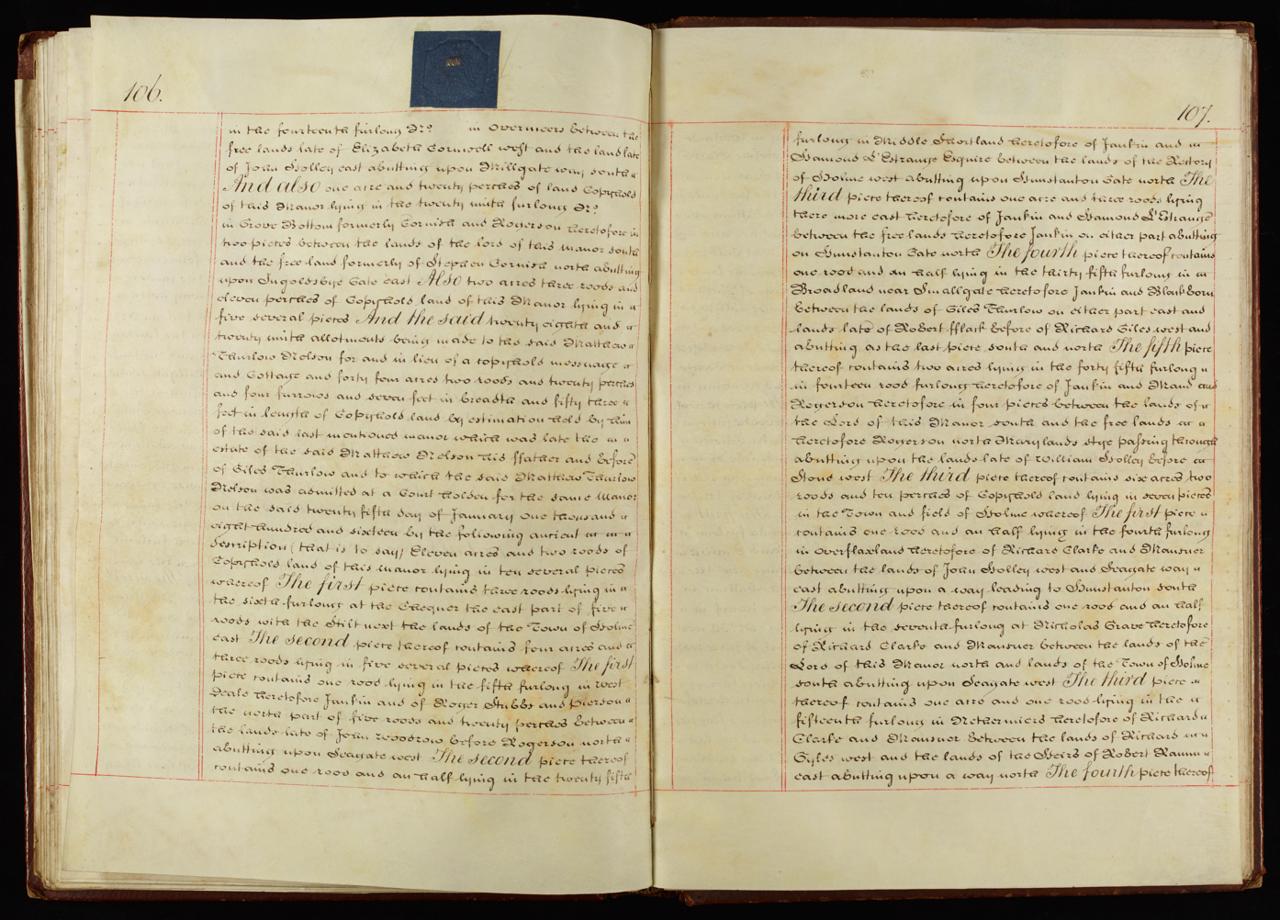 106.
in the fourteenth furlong N.o in Overmeers between the
free lands late of Elizabeth Cornwell west and the land late
of John Holley east abutting upon Millgate way south
And also one acre and twenty perches of land Copyhold
of this Manor lying in the twenty ninth furlong N.o
in Grove Bottom formerly Cornish and Rogerson heretofore in
two pieces between the lands of the lord of this manor south
and the free land formerly of Stephen Cornish north abutting
upon Ingoldsbye Gate east Also two acres three roods and
eleven perches of Copyhold land of this Manor lying in
five several pieces And the said twenty eighth and
twenty ninth allotments being made to the said Matthew
Thurlow Nelson for and in lieu of a copyhold messuage
and Cottage and forty four acres two roods and twenty perches
and four furrows and seven feet in breadth and fifty three
feet in length of Copyhold land by estimation held by him
of the said last mentioned manor which was late the
estate of the said Matthew Nelson his ffather and before
of Giles Thurlow and to which the said Matthew Thurlow
Nelson was admitted at a Court holden for the same Manor
on the said twenty fifth day of January One thousand
eight hundred and sixteen by the following ancient
description (that is to say) Eleven acres and two roods of
Copyhold land of this manor lying in ten several pieces
whereof The first piece contains three roods lying in
the sixth furlong at the Chequer the east part of five
roods with the Stilt next the lands of the Town of Holme
east The second piece thereof contains four acres and
three roods lying in five several pieces whereof The first
piece contains one rood lying in the fifth furlong in West
Deale heretofore Jankin and of Roger Stubbs and Pierson
the north part of five roods and twenty perches between
the lands late of John Woodrow before Rogerson north
abutting upon Seagate west The second piece thereof
contains one rood and an half lying in the twenty fifth
107.
furlong in Middle Shortland heretofore of Jankin and
Hamond L'Estrange Esquire between the lands of the Rectory
of Holme west abutting upon Hunstanton Gate north The
third piece thereof contains one acre and three roods lying
there more east heretofore of Jankin and Hamond L'Estrange
between the free lands heretofore Jankin on either part abutting
on Hunstanton Gate north The fourth piece thereof contains
one rood and an half lying in the thirty fifth furlong in
Broadland near Smallgate heretofore Jankin and Blackborn
between the lands of Giles Thurlow on either part east and
lands late of Robert fflack before of Richard Giles west and
abutting as the last piece south and north The fifth piece
thereof contains two acres lying in the forty fifth furlong
in fourteen rood furlong heretofore of Jankin and Mand and
Rogerson heretofore in four pieces between the lands of
the Lord of this Manor south and the free lands
heretofore Rogerson north Marylands Stye passing through
abutting upon the lands late of William Holley before
Hond west The third piece thereof contains six acres two
roods and ten perches of Copyhold land lying in seven pieces
in the Town and field of Holme whereof The first piece
contains one rood and an half lying in the fourth furlong
in Overflaxland heretofore of Richard Clarke and Mansuer
between the lands of John Holley west and Seagate way
east abutting upon a way leading to Hunstanton south
The second piece thereof contains one rood and an half
lying in the seventh furlong at Nicholas Grave heretofore
of Richard Clarke and Mansuer between the lands of the
Lord of this Manor north and lands of the Town of Holme
south abutting upon Seagate west The third piece
thereof contains one acre and one rood lying in the
fifteenth furlong in Nethermeers heretofore of Richard
Clarke and Mansuer between the lands of Richard
Gyles west and the lands of the Heirs of Robert
east abutting upon a way north The fourth piece thereof